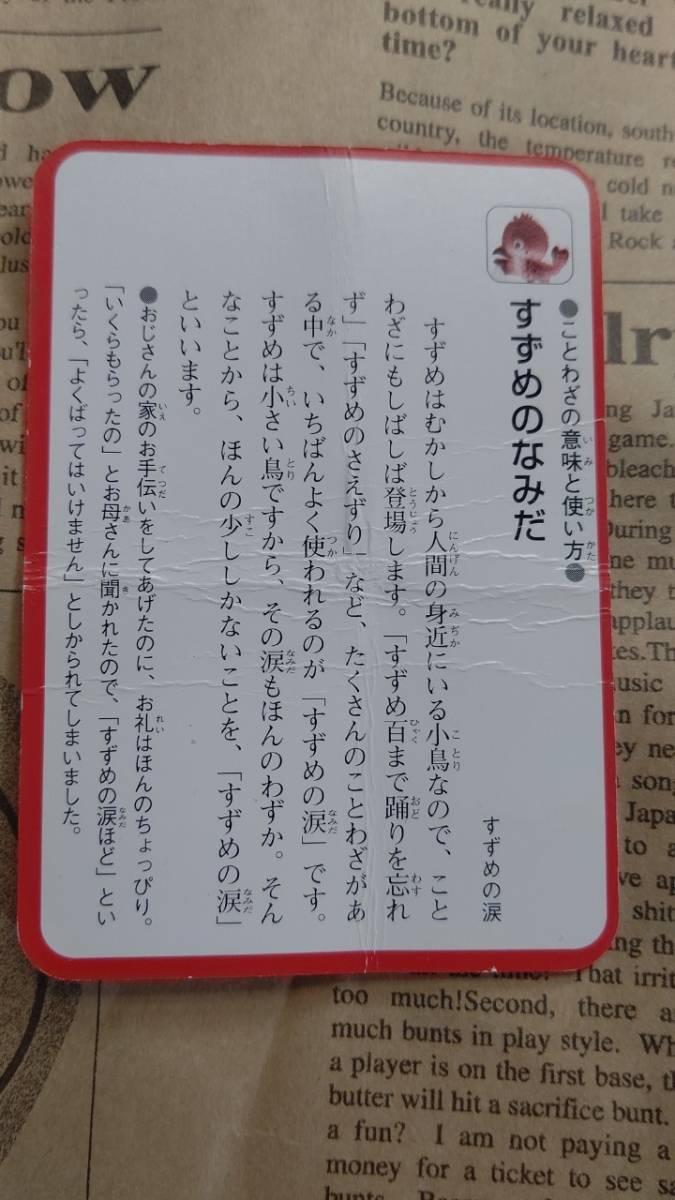 ●ことわざの意味と使い方●
すずめのなみだ
すずめの涙
すずめはむかしから人間の身近にいる小鳥なので、こと
わざにもしばしば登場します。「すずめ百まで踊りを忘れ
ず」「すずめのさえずり」など、たくさんのことわざがあ
る中で、いちばんよく使われるのが「すずめの涙」です。
すずめは小さい鳥ですから、その涙もほんのわずか。そん
なことから、ほんの少ししかないことを、「すずめの涙」
といいます。
●おじさんの家のお手伝いをしてあげたのに、お礼はほんのちょっぴり。
「いくらもらったの」とお母さんに聞かれたので、「すずめの涙ほど」とい
ったら、「よくばってはいけません」としかられてしまいました。
ow
relaxed
bottom of your heart
time?
Because of its location, south
country, the temperature
cold
I take
Rock
game.
bleach
here
During
they
song
Japa
to a
That
too much!Second, there
much bunts in play style.
a player is on the first base,
butter will hit a sacrifice bunt.
a fun? I am not paying a
money for a ticket to see